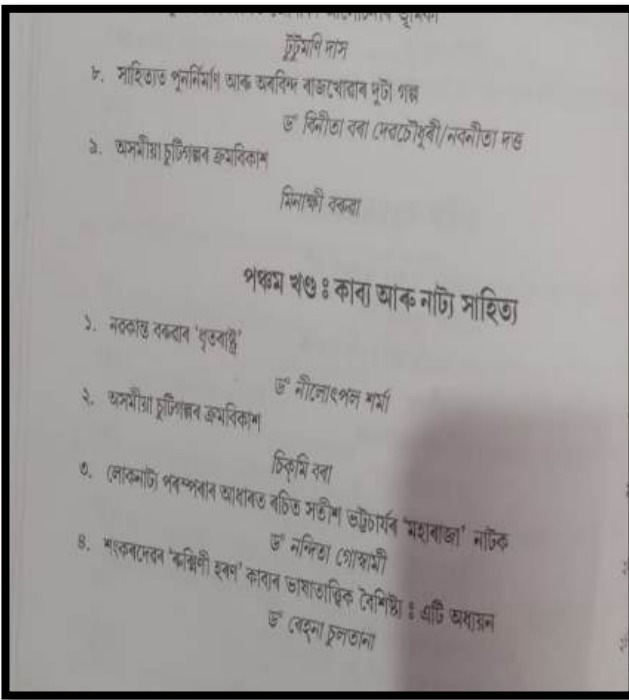 টুটুমণি দাস
৮. সাহিত্যত পুনৰ্নিৰ্মাণ আৰু অৰবিন্দ ৰাজখোৱাৰ দুটা গল্প
ড° বিনীতা বৰা দেৱচৌধুৰী/নবনীতা দত্ত
৯. অসমীয়া চুটিগল্পৰ ক্ৰমবিকাশ
মিনাক্ষী বৰুৱা
পঞ্চম খণ্ড ঃ কাব্য আৰু নাট্য সাহিত্য
১. নৱকান্ত বৰুৱাৰ 'ধৃতৰাষ্ট্ৰ'
ড° নীলোৎপল শৰ্মা
২. অসমীয়া চুটিগল্পৰ ক্ৰমবিকাশ
চিক্‌মি বৰা
৩. লোকনাট্য পৰম্পৰাৰ আধাৰত ৰচিত সতীশ ভট্টাচাৰ্যৰ 'মহাৰাজা' নাটক
ড° নন্দিতা গোস্বামী
৪. শংকৰদেৱৰ 'ৰুক্মিণী হৰণ' কাব্যৰ ভাষাতাত্ত্বিক বৈশিষ্ট্য ঃ এটি অধ্যয়ন
ড° ৰেহনা চুলতানা